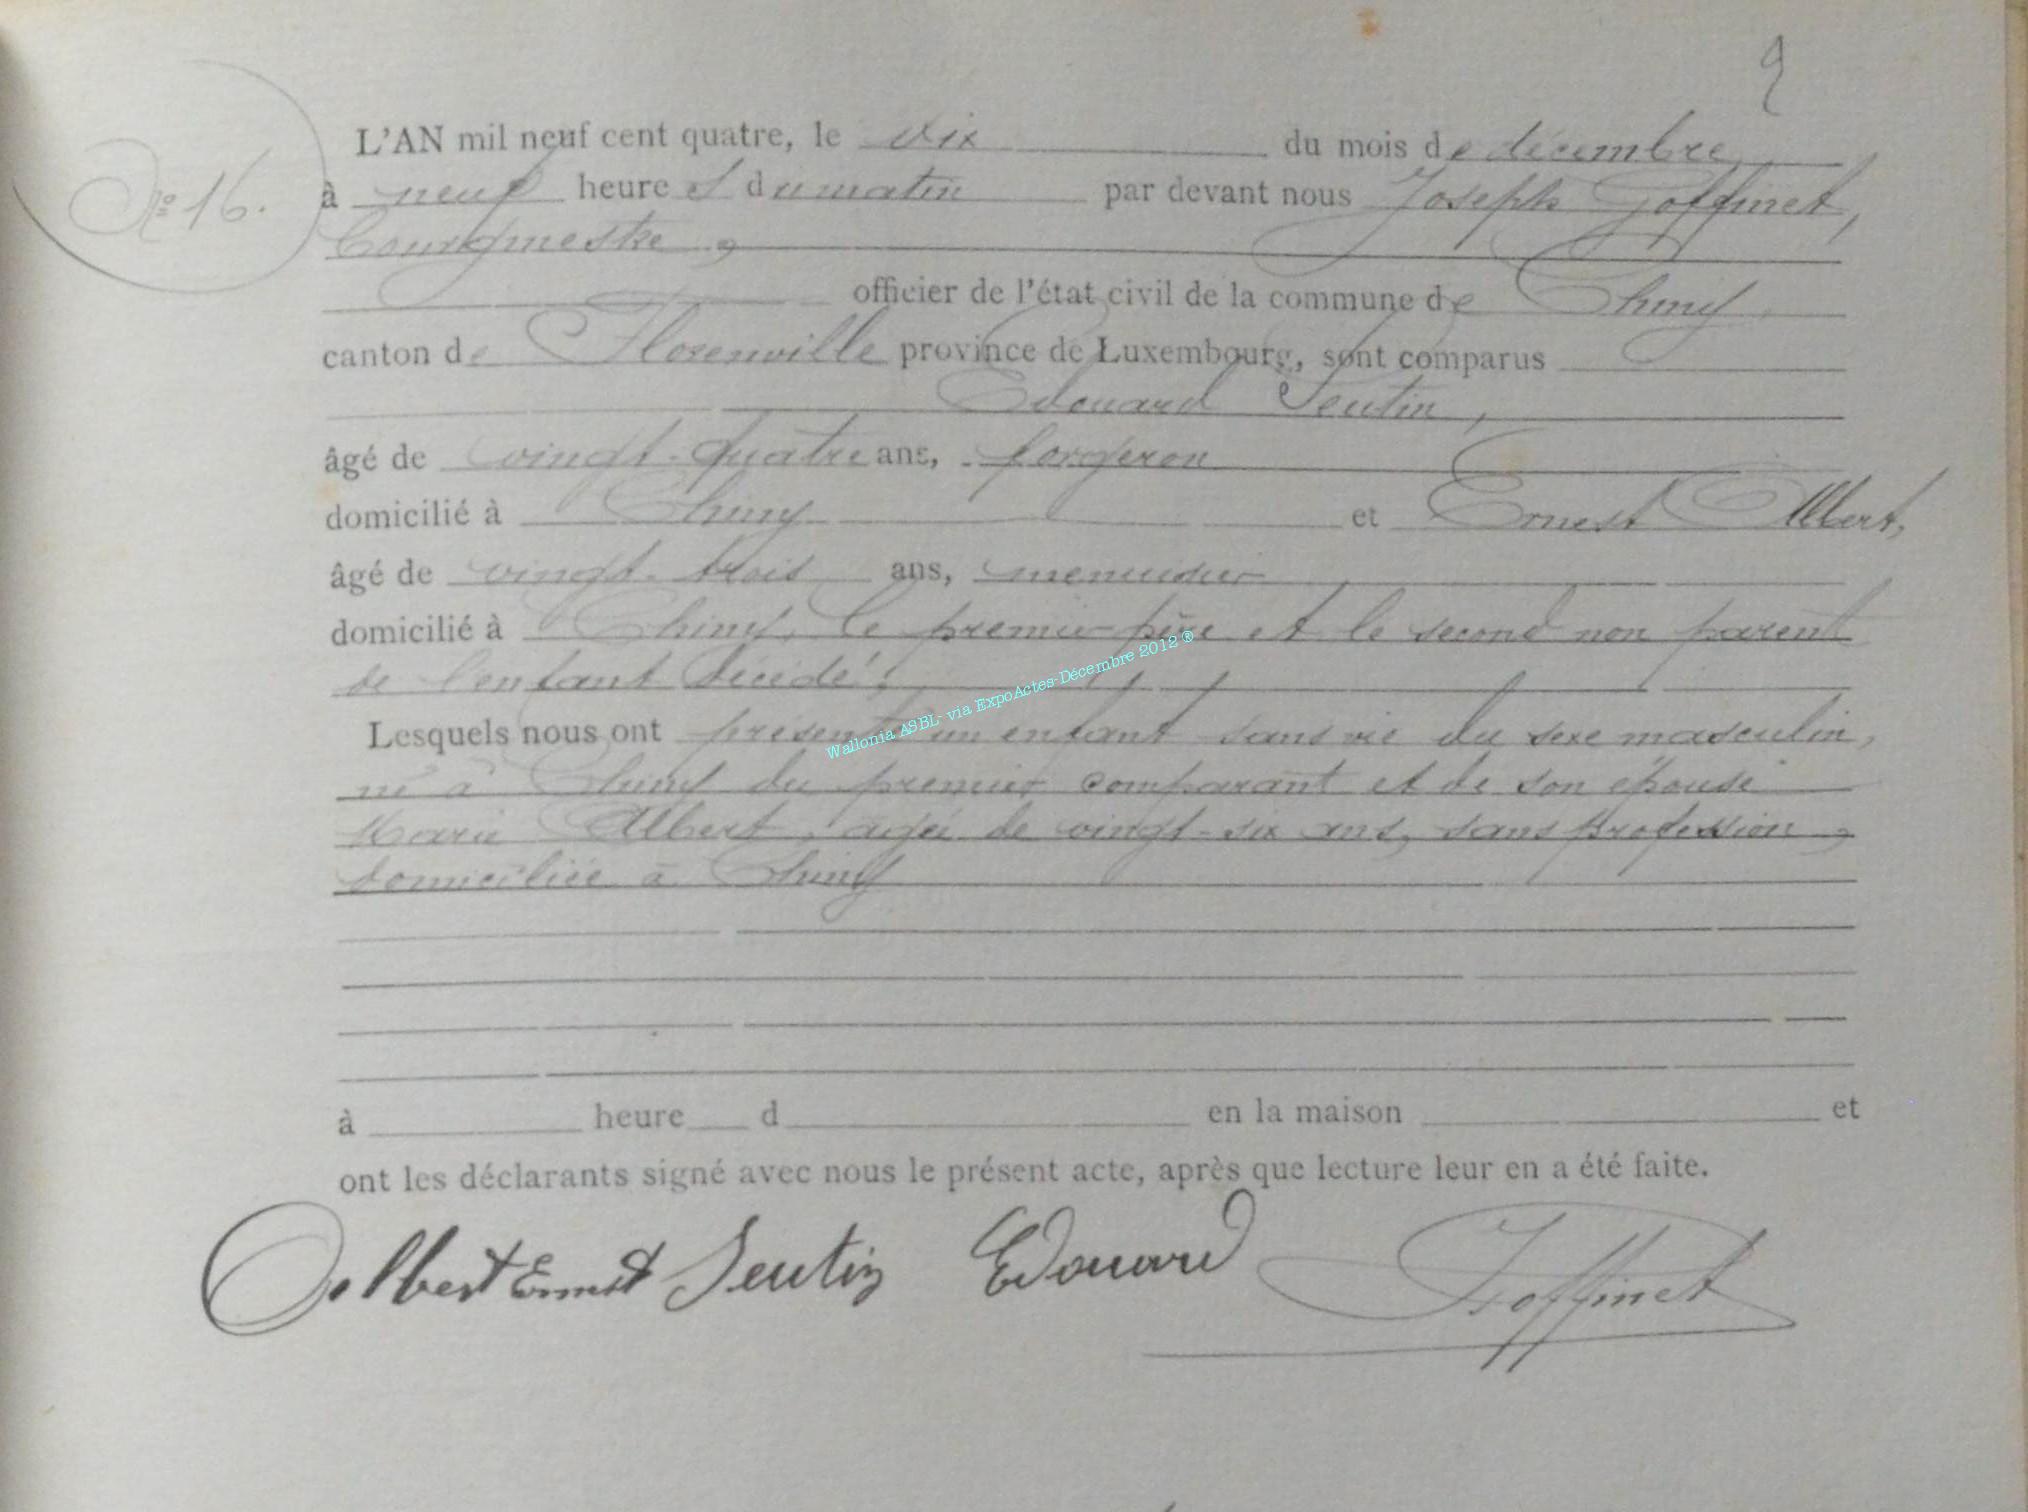 9
L'AN mil neuf cent quatre, le dix du mois de décembre
No 16.
à neuf heures du matin par devant nous Joseph Goffinet,
bourgmestre,
officier de l'état civil de la commune de Chiny
canton de Florenville province de Luxembourg, sont comparus
Edouard Seutin,
âgé de vingt-quatre ans, forgeron
domicilié à Chiny et Ernest Albert,
âgé de vingt-trois ans, menuisier
domicilié à Chiny, le premier père et le second non parent
de l'enfant décédé;
Lesquels nous ont présenté un enfant sans vie du sexe masculin,
né à Chiny du premier comparant et de son épouse
Marie Albert, agée de vingt-six ans, sans profession,
domiciliée à Chiny
Wallonia ASBL- via ExpoActes-Décembre 2012 ®
à heure d en la maison et
ont les déclarants signé avec nous le présent acte, après que lecture leur en a été faite.
Albert Ernest Seutin Edouard JGoffinet